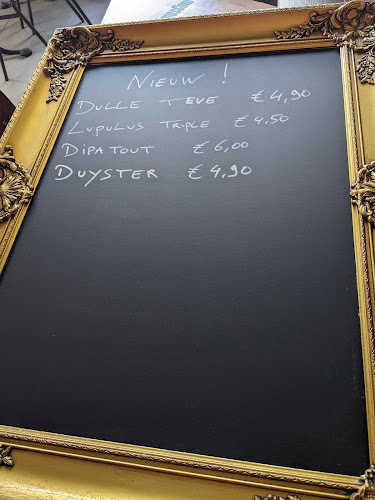 NIEUW !
DULLE TEVE € 4,90
LUPULUS TRIPLE € 4,50
DIPATOUT € 6,00
DUYSTER € 4,90